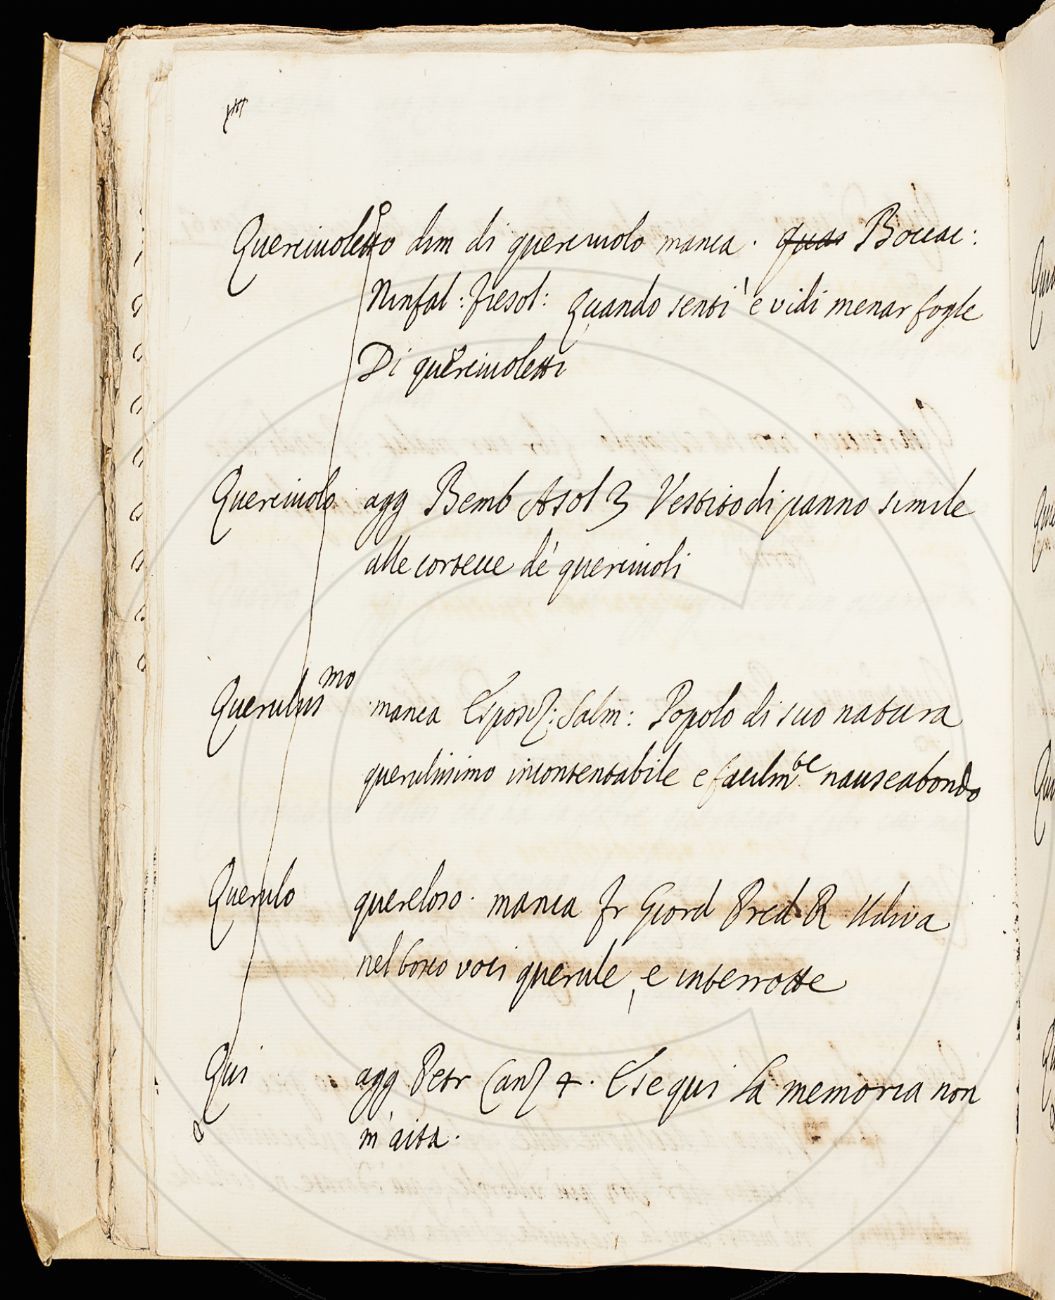 Querciuoletto dim di querciuolo manca. quas Boccac:
Ninfal: fiesol: Quando sentì e vidi menar foglie
Di querciuoletti
Querciuolo agg Bemb Asol 3 Vestito di panno simile
alle cortecce de' querciuoli
Querulissmo manca Esposiz: Salm: Popolo di suo natura
querulissimo incontentabile e facilmte nauseabondo
Querulo quereloso. manca fr Giord Pred R Udiva
nel bosco voci querule, e interrotte
Qui agg Petr Canz 4. E se qui la memoria non
m'aita.